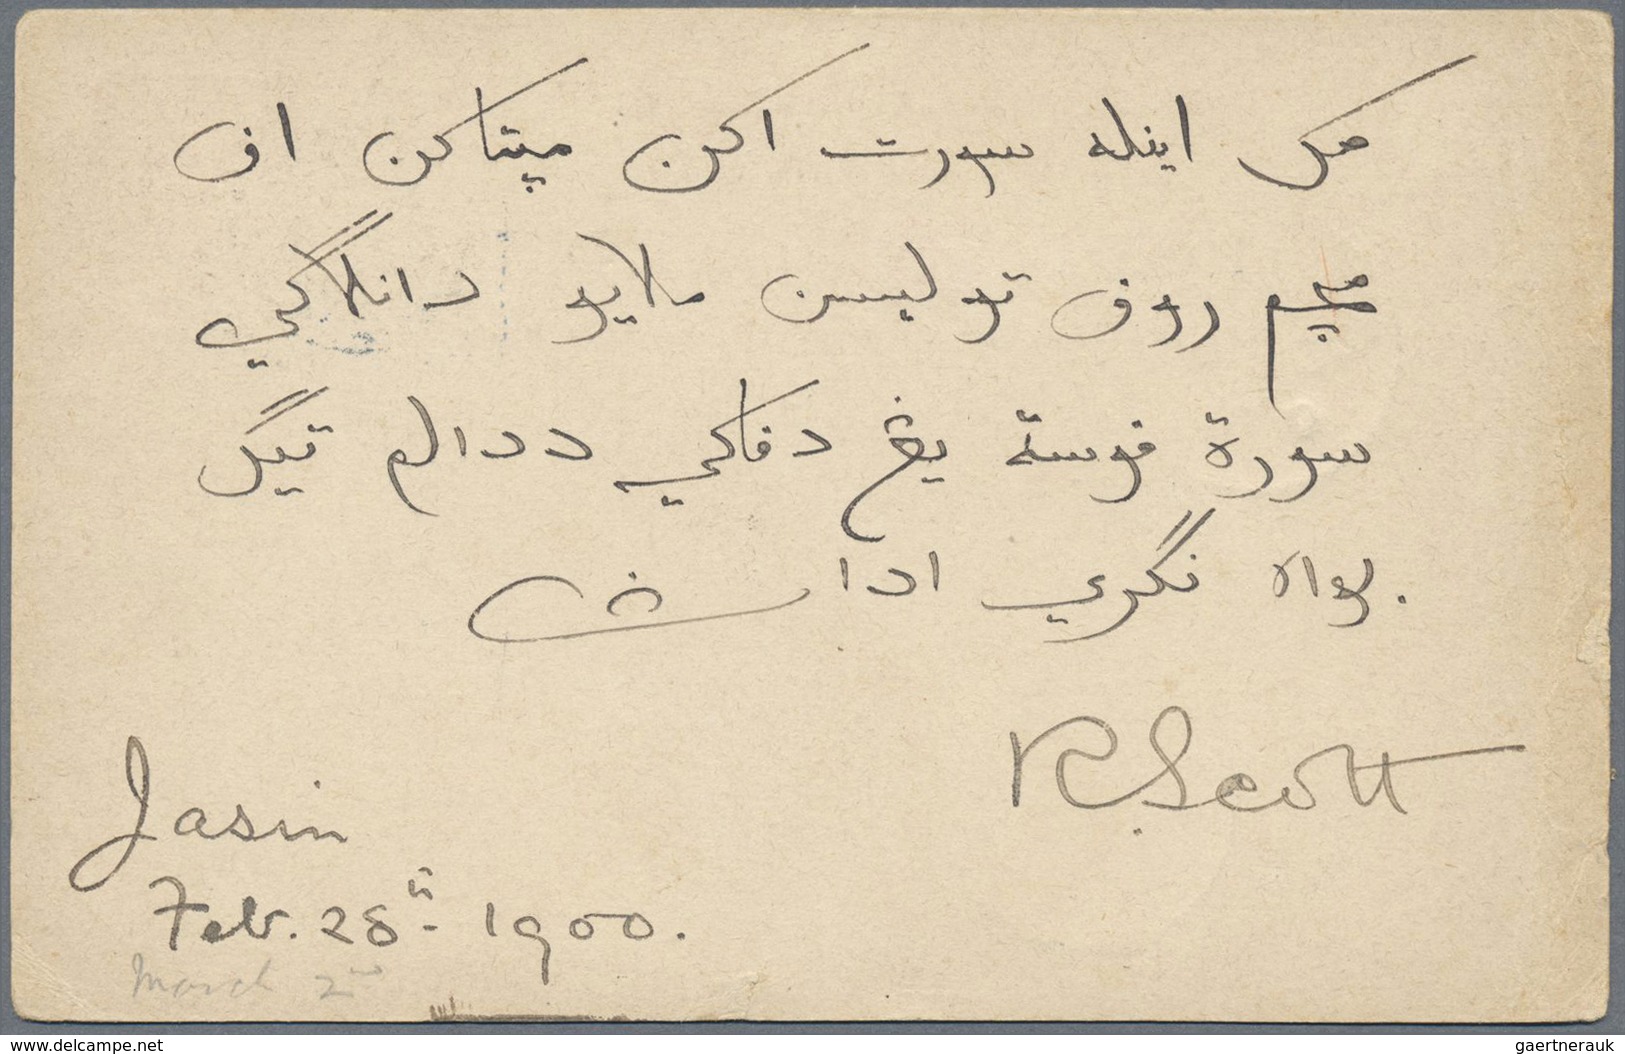 مک اينله سورت اکن ميتاکن اف
مچم روف توليسن ملايو دانلاگي
سورة فوسة يڠ دفاکي ددالم تيگ
بواه نگري ادا
R Scott
Jasin
Feb. 28th 1900.
March 2nd
www.delcampe.net
gaertnerauk